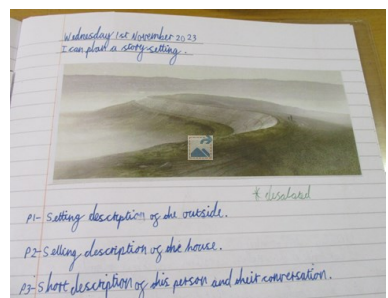 Wednesday 1st November 2023
I can plan a story setting.
* desolated
P1- Setting description of the outside.
P2- Setting description of the house.
P3- Short description of this person and their conversation.